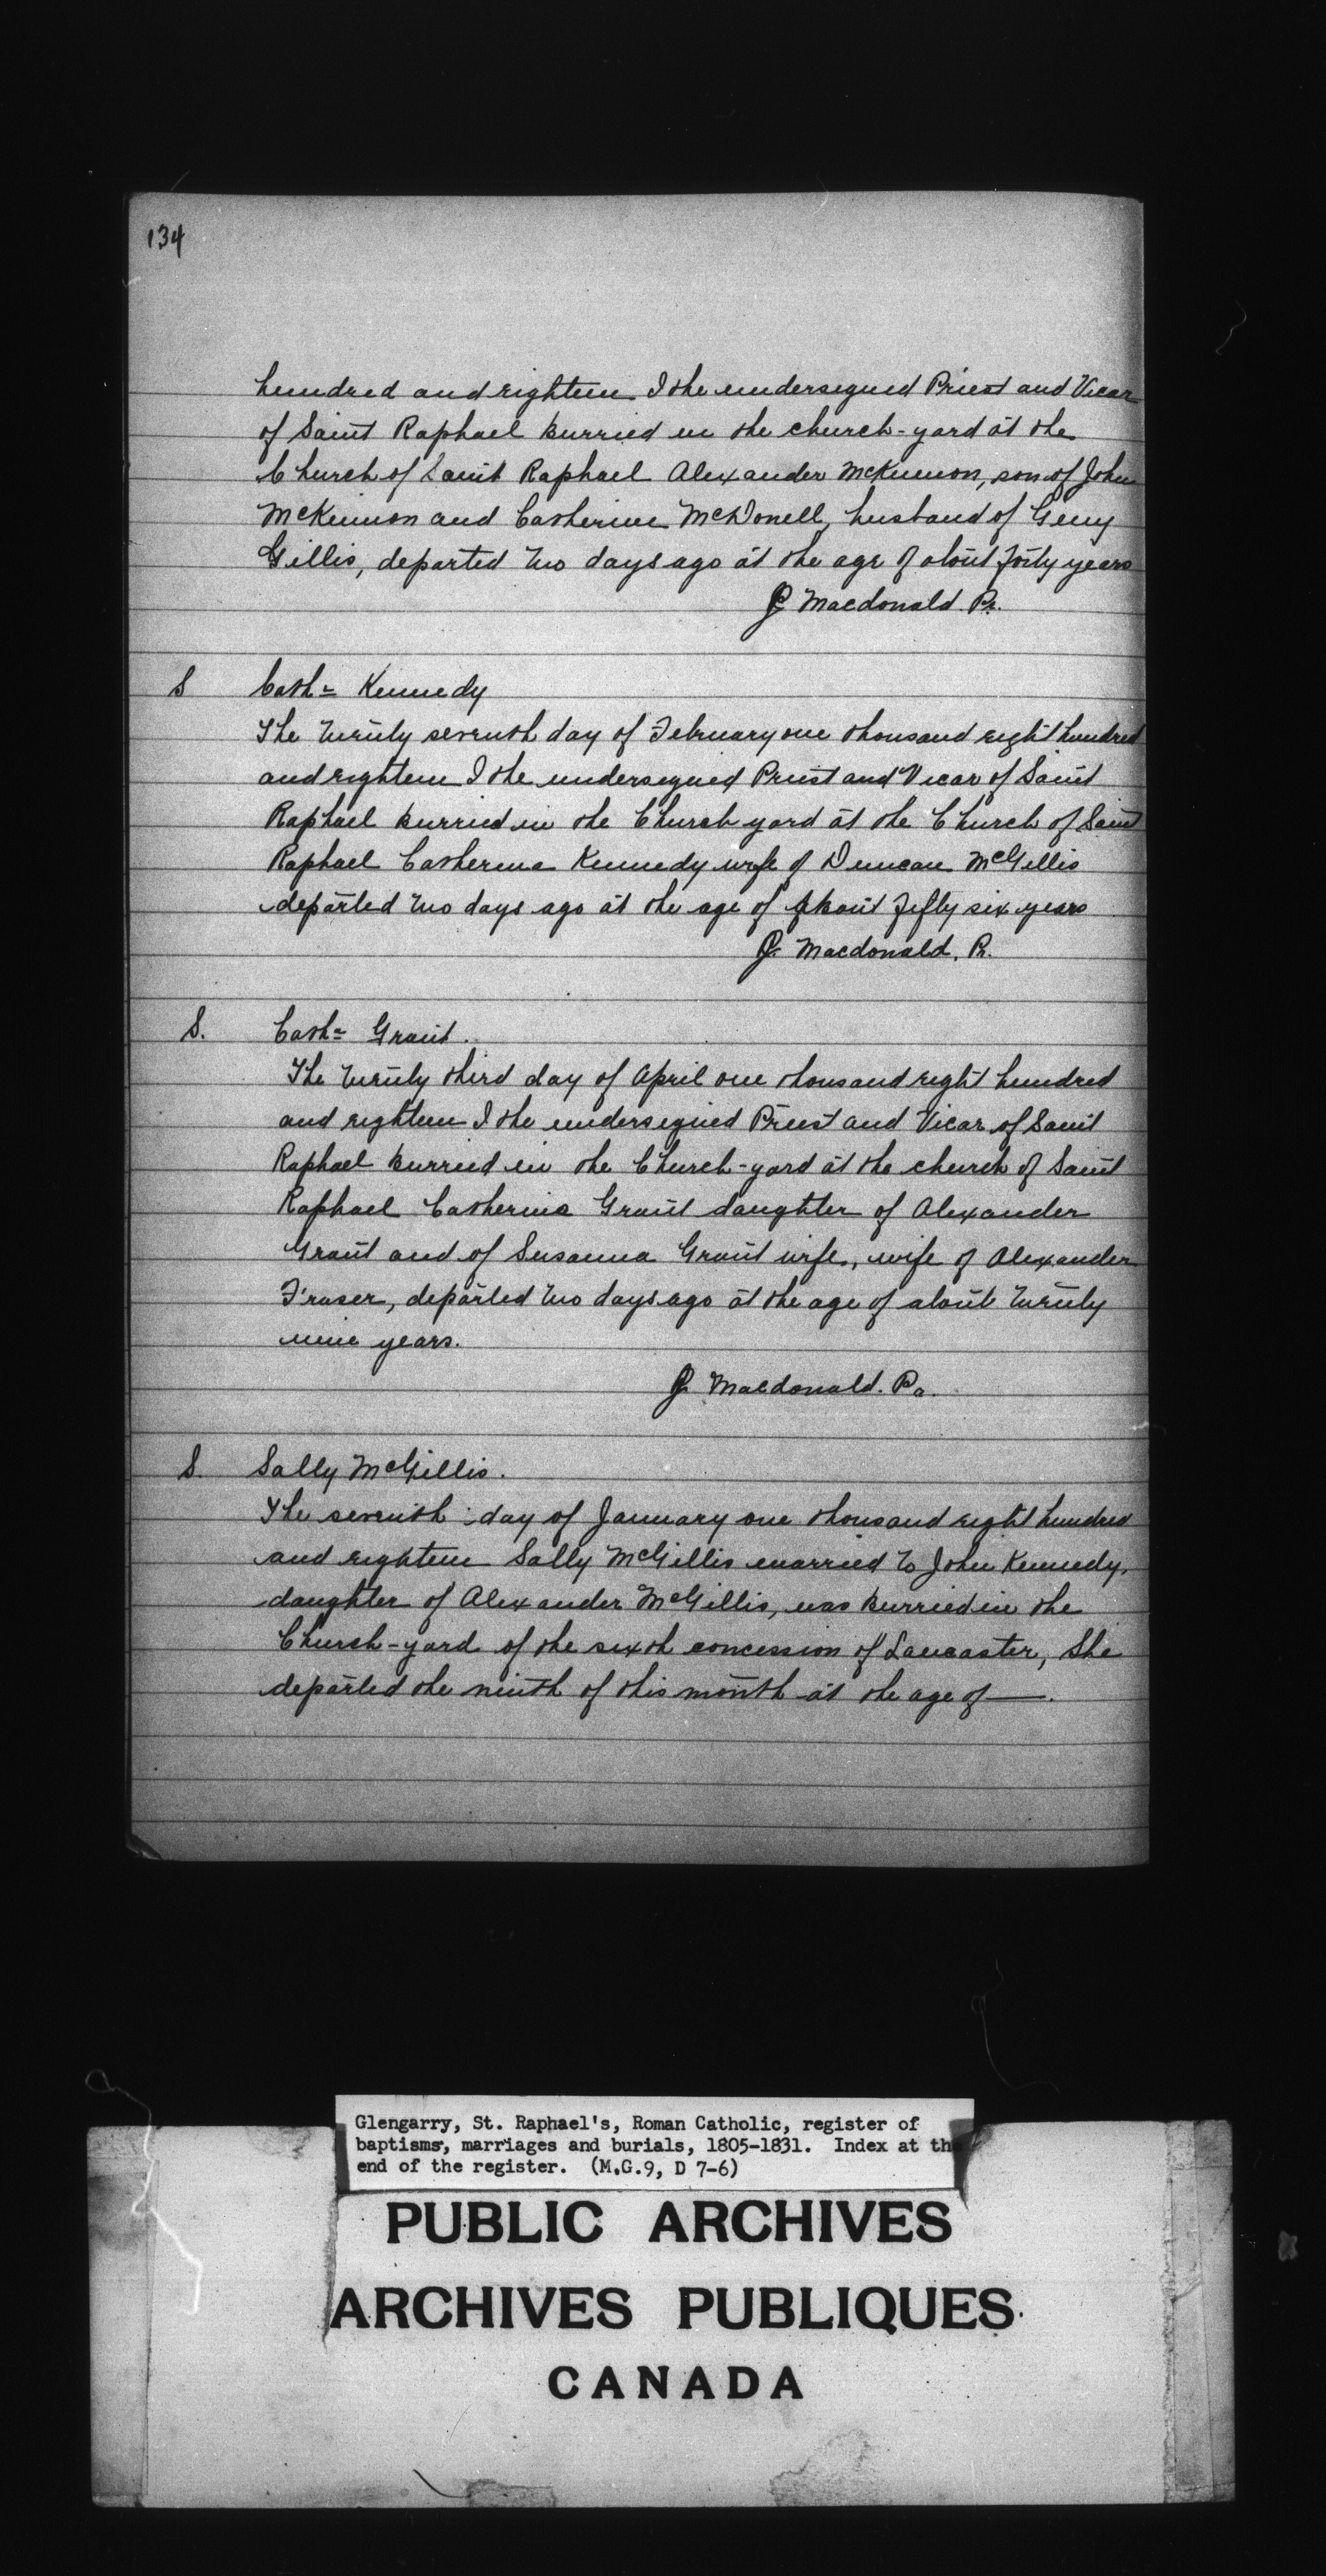 134
hundred and eighteen I the undersigned Priest and Vicar
of Saint Raphael burried in the church-yard at the
Church of Saint Raphael Alexander McKinnon, son of John
McKinnon and Catherine McDonell, husband of Geny
Gillis, departed two days ago at the age of about forty years
J Macdonald Pr.
S Cath= Kennedy
The twenty seventh day of February one thousand eight hundred
and eighteen I the undersigned Priest and Vicar of Saint
Raphael burried in the Church yard at the Church of Saint
Raphael Catherine Kennedy wife of Duncan McGillis
departed two days ago at the age of about fifty six years
J. Macdonald. Pr.
S. Cath= Grant.
The twenty third day of April one thousand eight hundred
and eighteen I the undersigned Priest and Vicar of Saint
Raphael burried in the Church-yard at the church of Saint
Raphael Catherine Grant daughter of Alexander
Grant and of Susanna Grant wife, wife of Alexander
Fraser, departed two days ago at the age of about twenty
nine years.
J. Macdonald. Pr.
S. Sally McGillis.
The seventh day of January one thousand eight hundred
and eighteen Sally McGillis married to John Kennedy,
daughter of Alexander McGillis, was burried in the
Church-yard of the sixth concession of Lancaster, She
departed the ninth of this month at the age of —.
Glengarry, St. Raphael's, Roman Catholic, register of
baptisms, marriages and burials, 1805-1831. Index at the
end of the register. (M.G.9, D 7-6)
PUBLIC ARCHIVES
ARCHIVES PUBLIQUES
CANADA